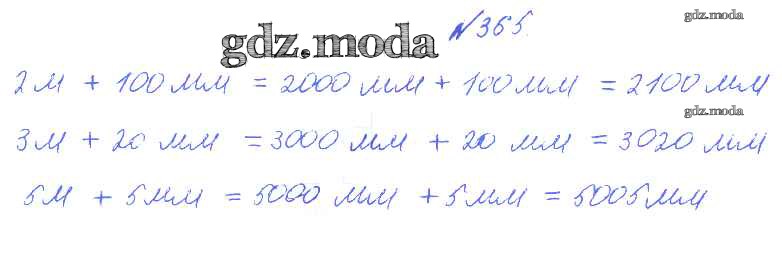 №365.
gdz.moda
gdz.moda
2м + 100мм = 2000 мм + 100мм = 2100 мм
gdz.moda
3м + 20 мм = 3000 мм + 20 мм = 3020 мм
5м + 5мм = 5000 мм + 5мм = 5005мм